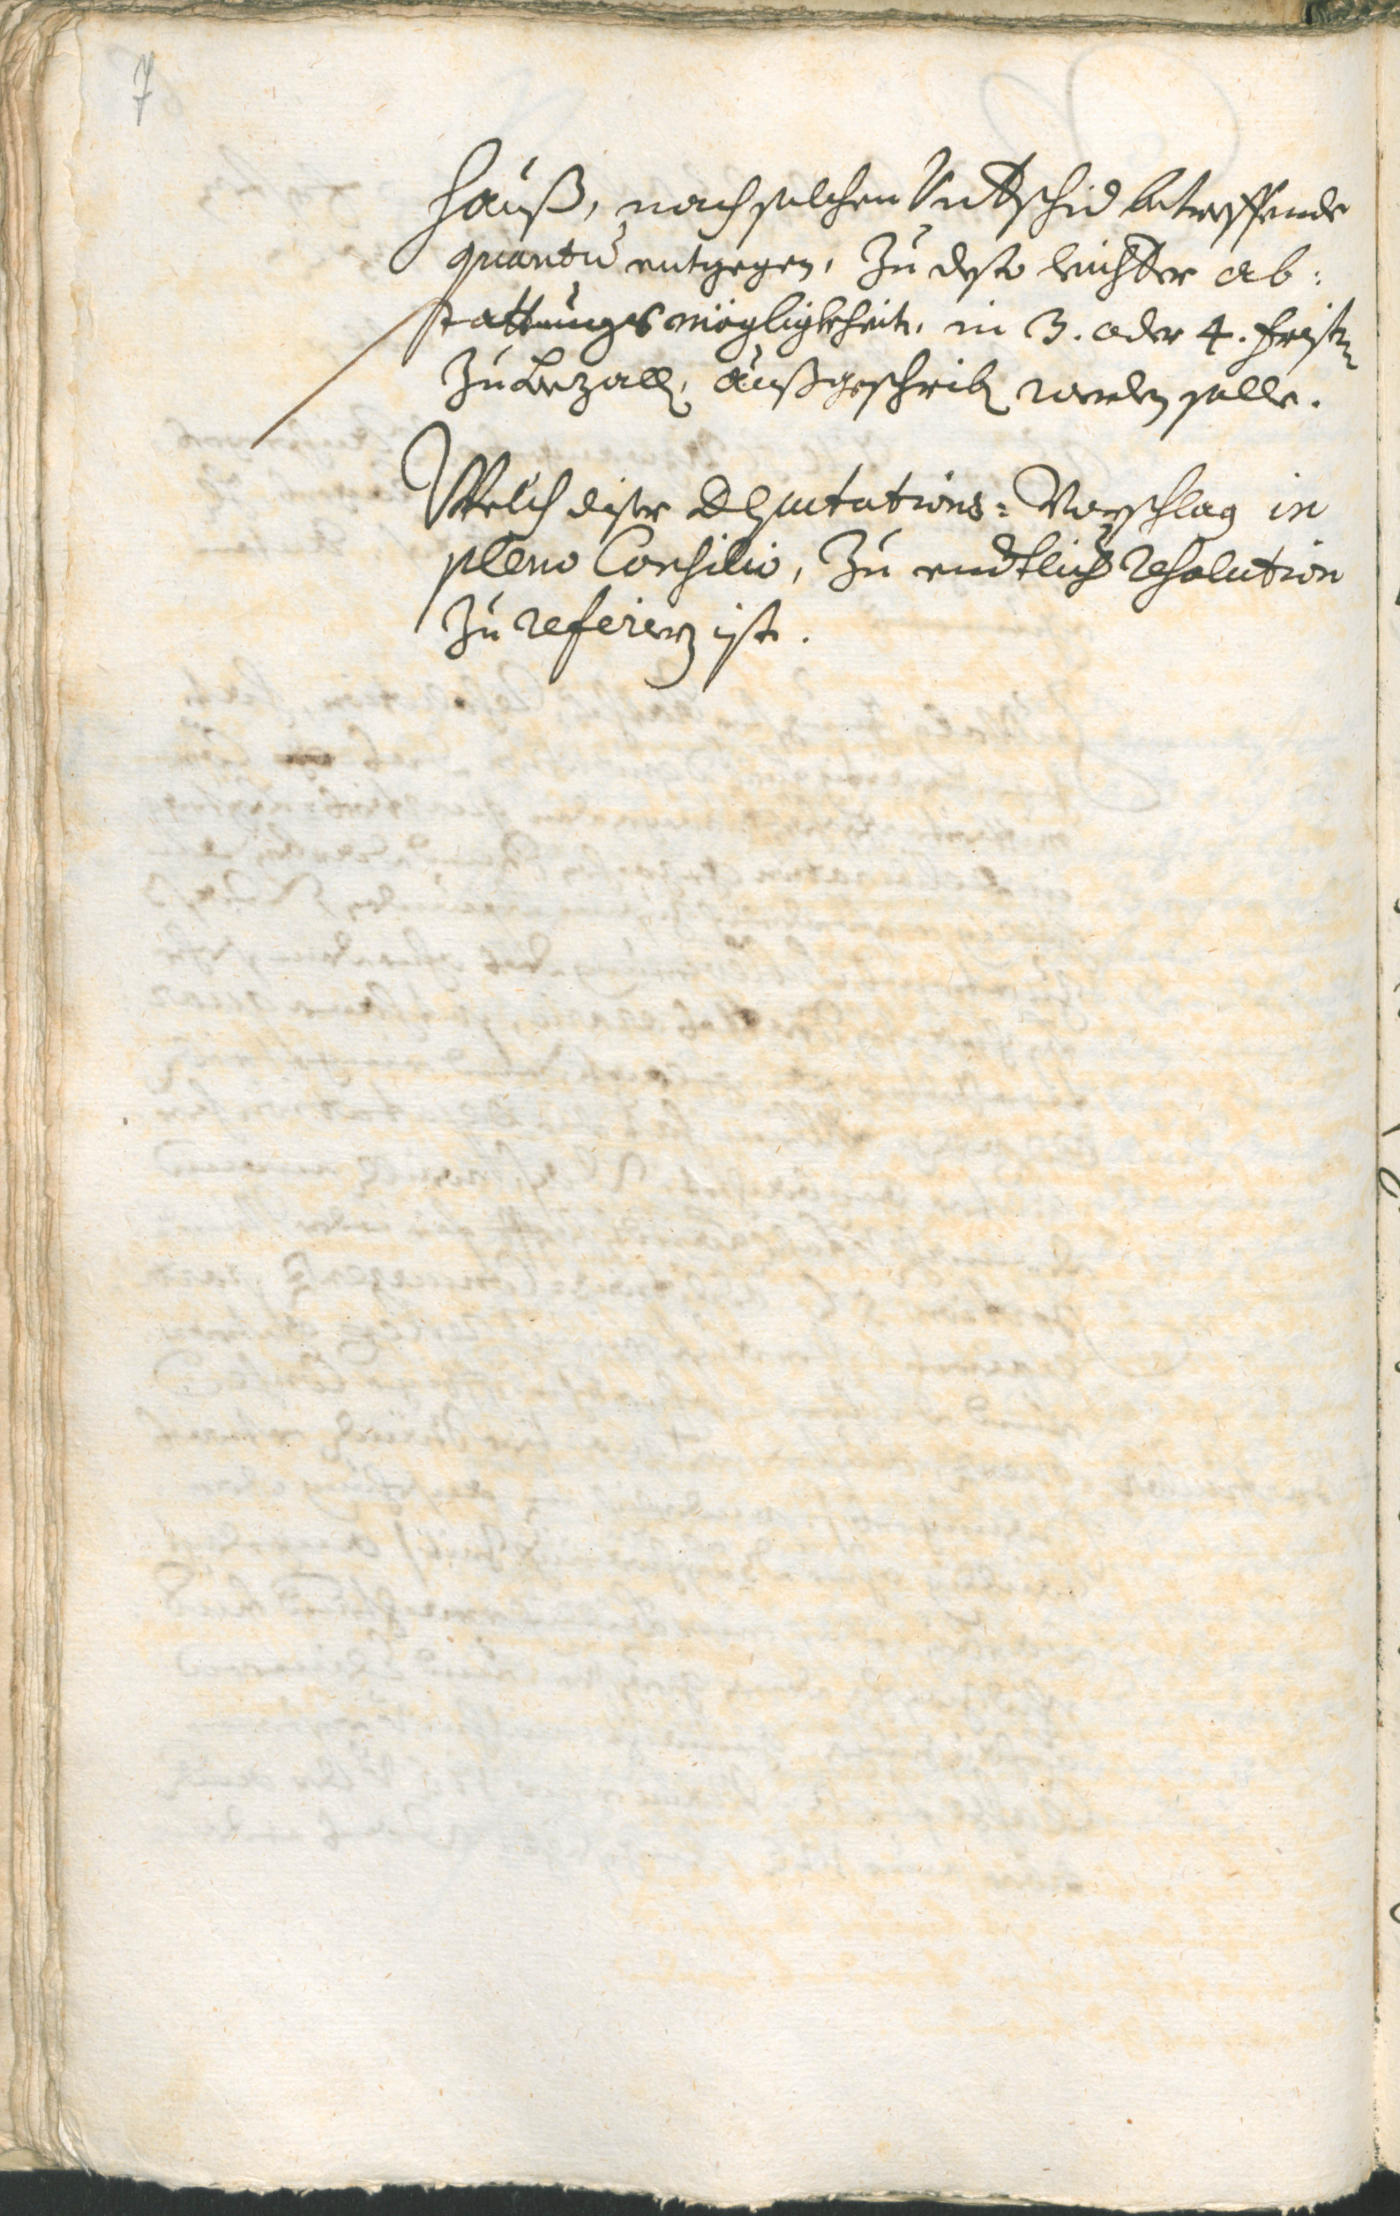 7
Hauß, nach solchen Vndtschid betreffende
quantũ entgegen, zu desto leichter ab:
stattungs mögligkheit, in 3. oder 4. fristn
zubezaln, außgeschribn werden solle.
Welch diser Deputations=Vorschlag in
pleno Consilio, zu endtlicher resolution
zu referiern ist.